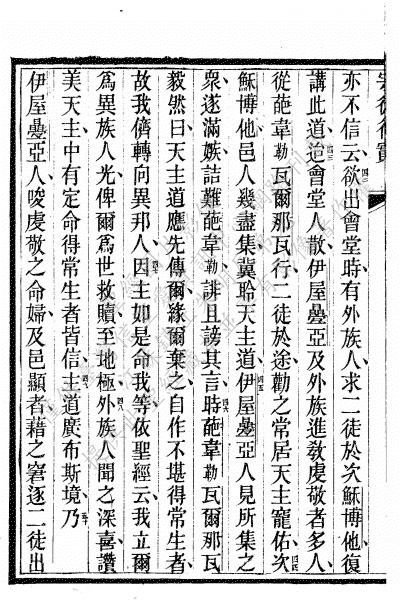 亦不信云四二欲出會堂時有外族人求二徒於次穌博他復
講此道四三迨會堂人散伊屋疊亞及外族進敎虔敬者多人
從葩韋勒瓦爾那瓦行二徒於途勸之常居天主寵佑四四次
穌博他邑人幾盡集冀聆天主道四五伊屋疊亞人見所集之
衆遂滿嫉詰難葩韋勒誹且謗其言四六時葩韋勒瓦爾那瓦
毅然曰天主道應先傳爾緣爾棄之自作不堪得常生者
故我儕轉向異邦人四七因主如是命我等依聖經云我立爾
爲異族人光俾爾爲世救贖至地極四八外族人聞之深喜讚
美天主中有定命得常生者皆信四九主道廣布斯境五十乃
伊屋疊亞人唆虔敬之命婦及邑顯者藉之窘逐二徒出